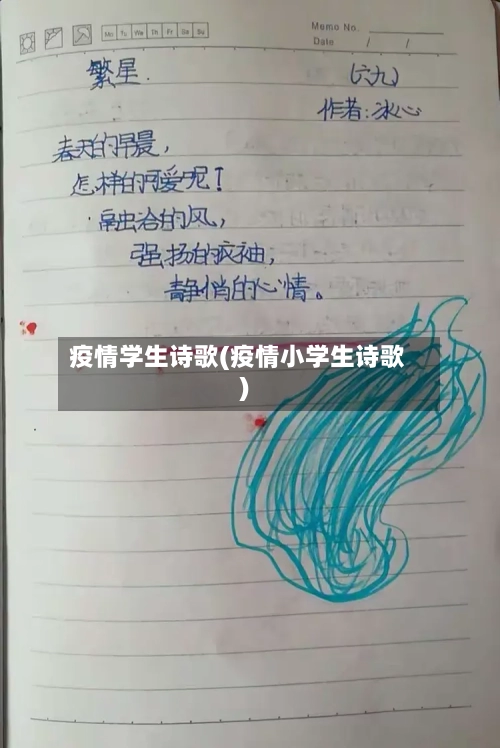 Mo Tu We Th Fr Sa Su
Memo No.
Date / /
繁星.
(六九)
作者:冰心
春天的早晨,
怎样的可爱呢!
融洽的风,
飘扬的衣袖,
静悄的心情。
疫情学生诗歌(疫情小学生诗歌
)